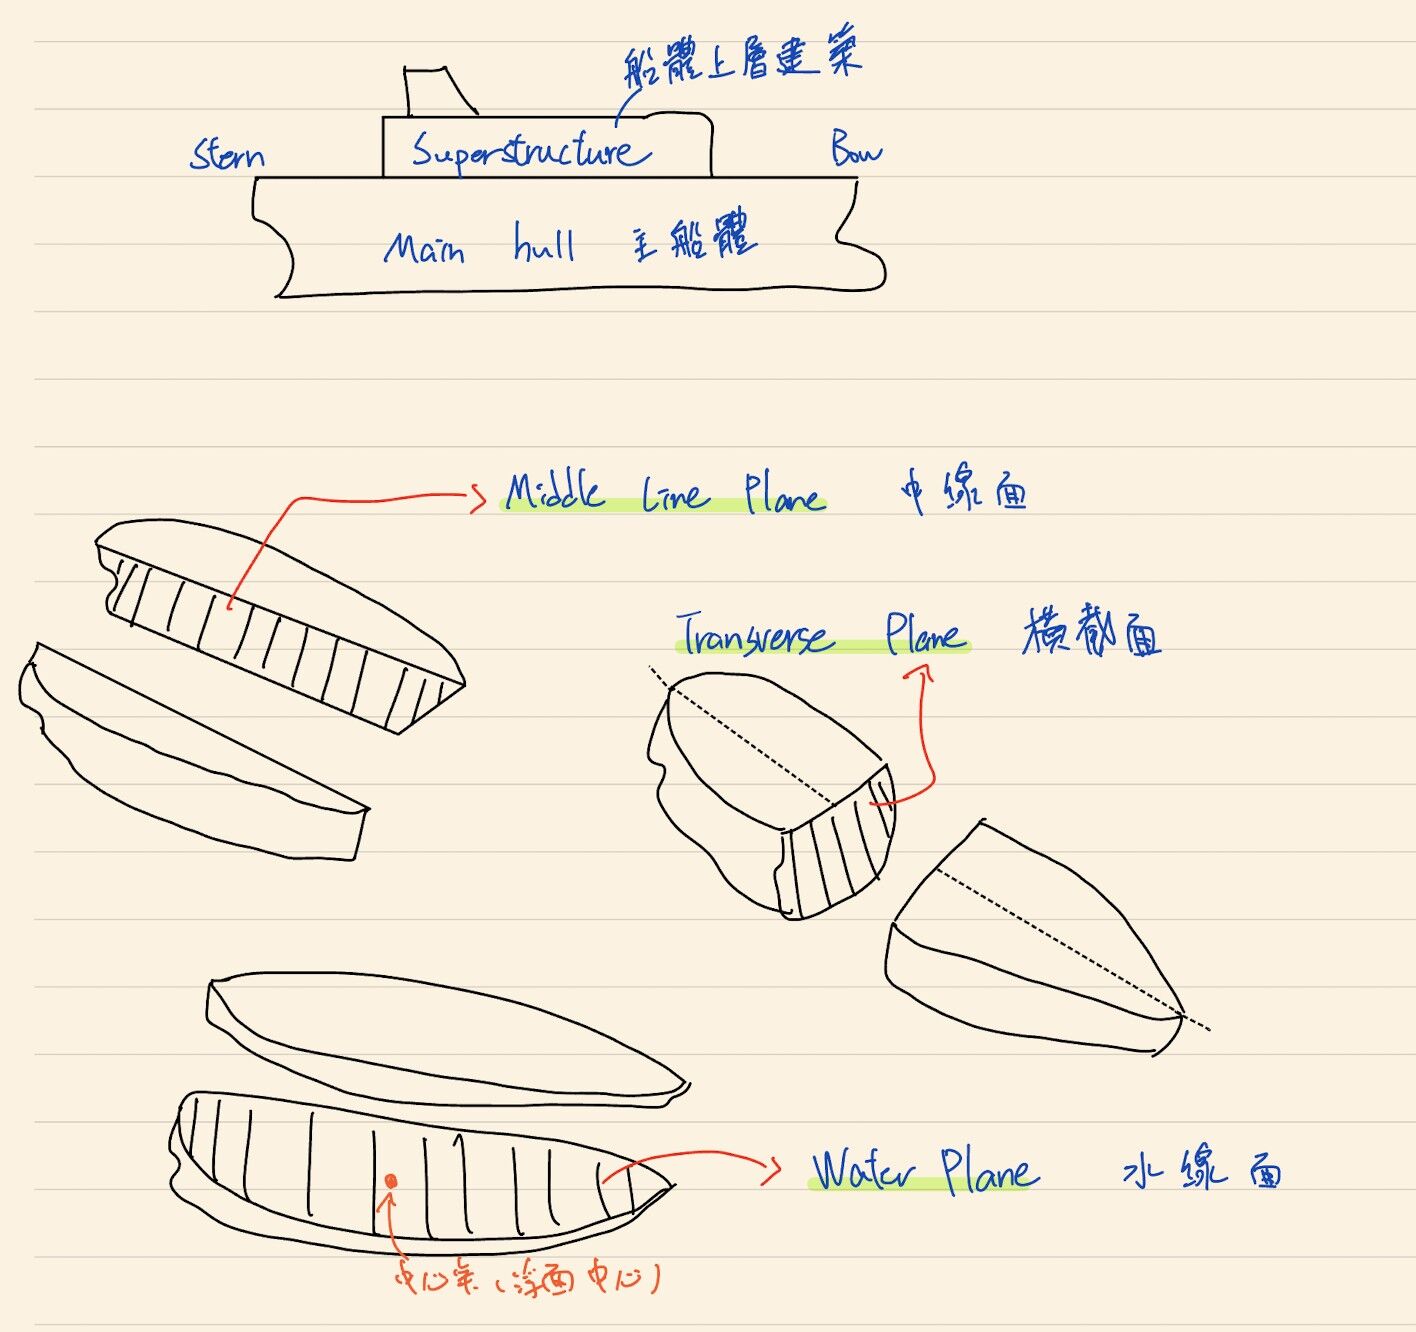 船體上層建築
Stern
Superstructure
Bow
Main hull 主船體
Middle Line Plane 中線面
Transverse Plane 橫截面
Water Plane 水線面
中心氣(浮面中心)